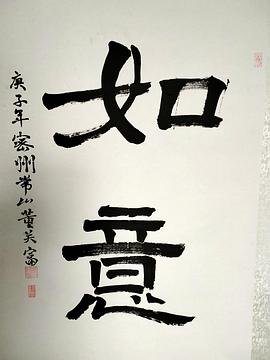 如意
庚子年密州常山董关富